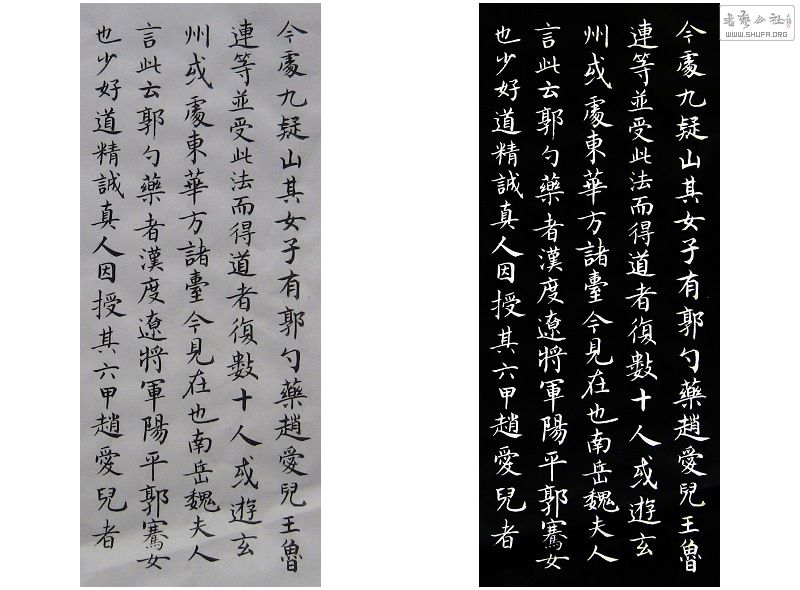 今處九疑山其女子有郭勺藥趙愛兒王魯
連等並受此法而得道者復數十人或遊玄
州或處東華方諸臺今見在也南岳魏夫人
言此云郭勺藥者漢度遼將軍陽平郭騫女
也少好道精誠真人因授其六甲趙愛兒者
今處九疑山其女子有郭勺藥趙愛兒王魯
連等並受此法而得道者復數十人或遊玄
州或處東華方諸臺今見在也南岳魏夫人
言此云郭勺藥者漢度遼將軍陽平郭騫女
也少好道精誠真人因授其六甲趙愛兒者
WWW.SHUFA.ORG